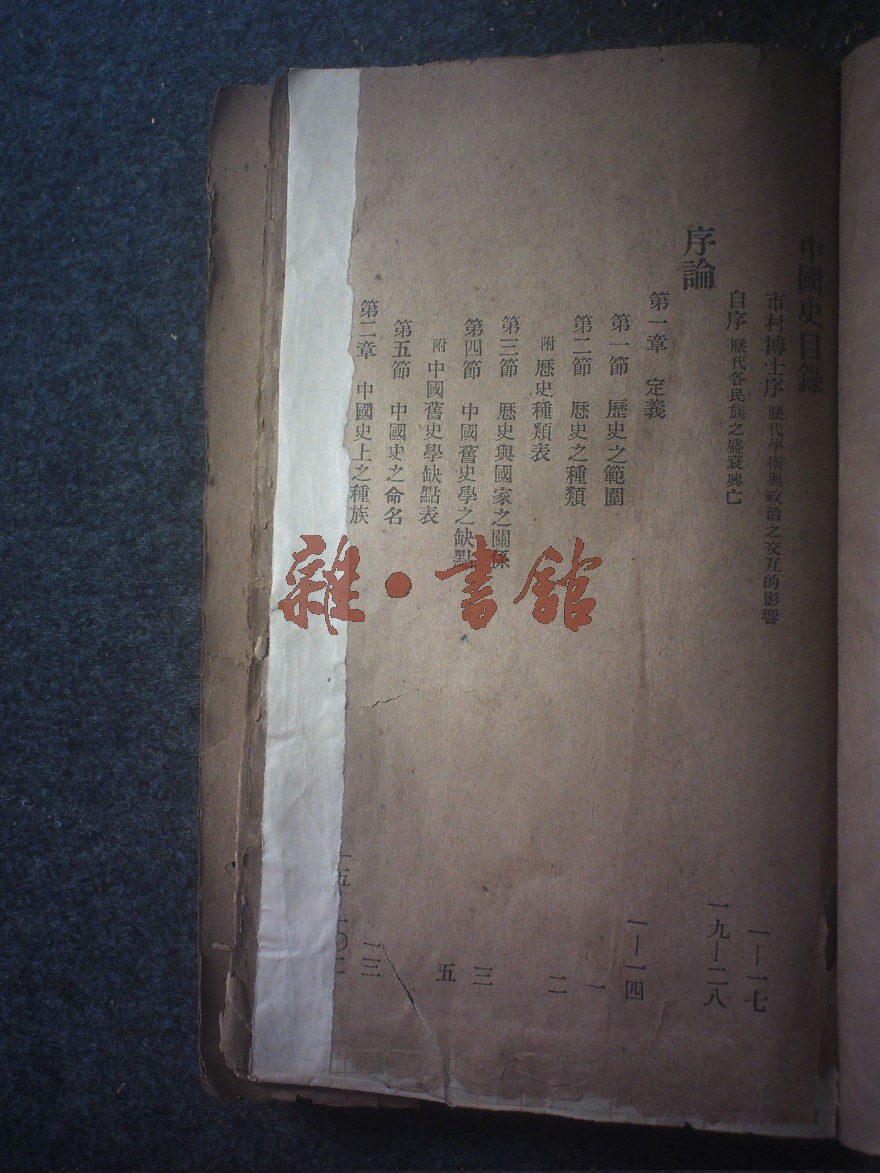 中國史目錄
市村博士序 歷代學術與政治之交互的影響 一—一七
自序 歷代各民族之盛衰興亡 一九—二八
序論
第一章 定義 一—一四
第一節 歷史之範圍 一
第二節 歷史之種類 二
附 歷史種類表
第三節 歷史與國家之關係 三
第四節 中國舊史學之缺點 五
附 中國舊史學缺點表
第五節 中國史之命名 一三
第二章 中國史上之種族 一五 一〇二
雜·書館